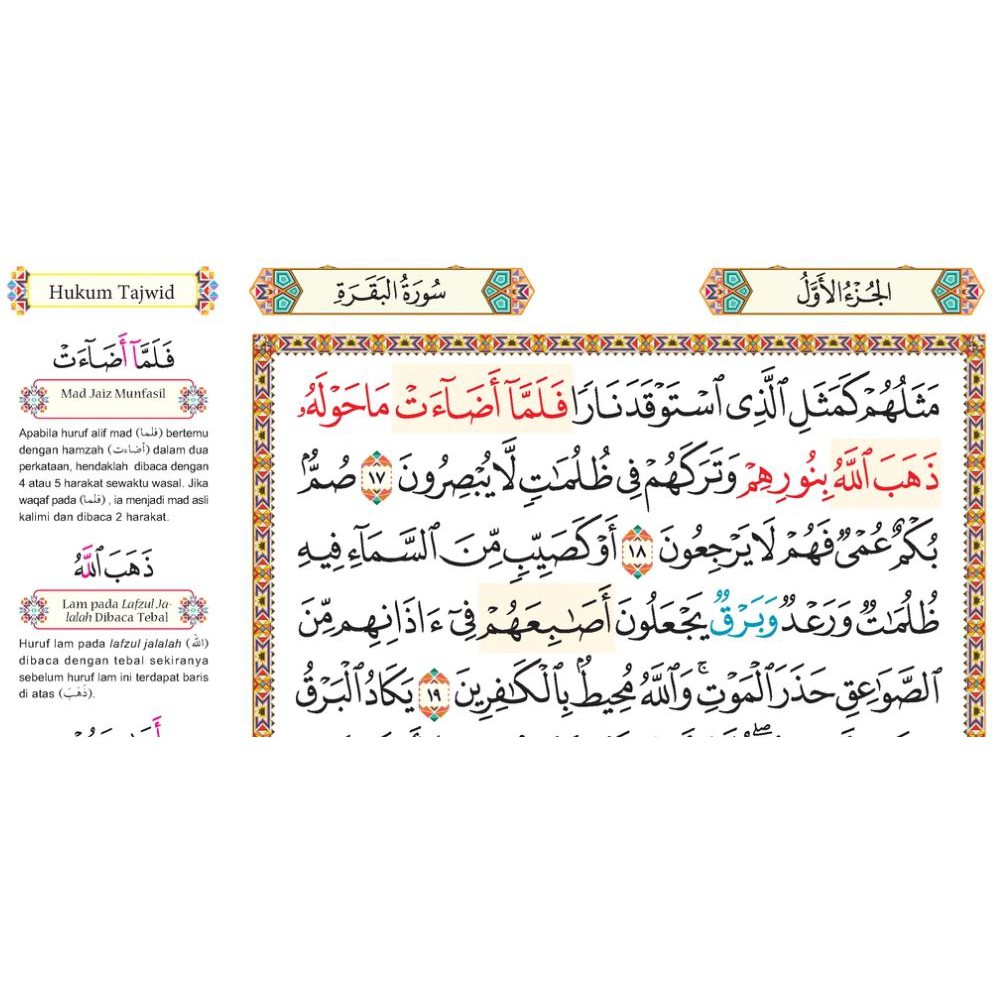 Hukum Tajwid
سُورَةُ الْبَقَرَةِ
الْجُزْءُ الْأَوَّلُ
فَلَمَّآ أَضَآءَتْ
Mad Jaiz Munfasil
Apabila huruf alif mad (فلما) bertemu
dengan hamzah (أضاءت) dalam dua
perkataan, hendaklah dibaca dengan
4 atau 5 harakat sewaktu wasal. Jika
waqaf pada (فلما), ia menjadi mad asli
kalimi dan dibaca 2 harakat.
ذَهَبَ ٱللَّهُ
Lam pada Lafzul Ja-
lalah Dibaca Tebal
Huruf lam pada lafzul jalalah (الله)
dibaca dengan tebal sekiranya
sebelum huruf lam ini terdapat baris
di atas (ذَهَبَ).
مَثَلُهُمْ كَمَثَلِ ٱلَّذِى ٱسْتَوْقَدَ نَارًا فَلَمَّآ أَضَآءَتْ مَا حَوْلَهُۥ
ذَهَبَ ٱللَّهُ بِنُورِهِمْ وَتَرَكَهُمْ فِى ظُلُمَـٰتٍ لَّا يُبْصِرُونَ ١٧ صُمٌّۢ
بُكْمٌ عُمْىٌ فَهُمْ لَا يَرْجِعُونَ ١٨ أَوْ كَصَيِّبٍ مِّنَ ٱلسَّمَآءِ فِيهِ
ظُلُمَـٰتٌ وَرَعْدٌ وَبَرْقٌ يَجْعَلُونَ أَصَـٰبِعَهُمْ فِىٓ ءَاذَانِهِم مِّنَ
ٱلصَّوَٰعِقِ حَذَرَ ٱلْمَوْتِ ۚ وَٱللَّهُ مُحِيطٌۢ بِٱلْكَـٰفِرِينَ ١٩ يَكَادُ ٱلْبَرْقُ